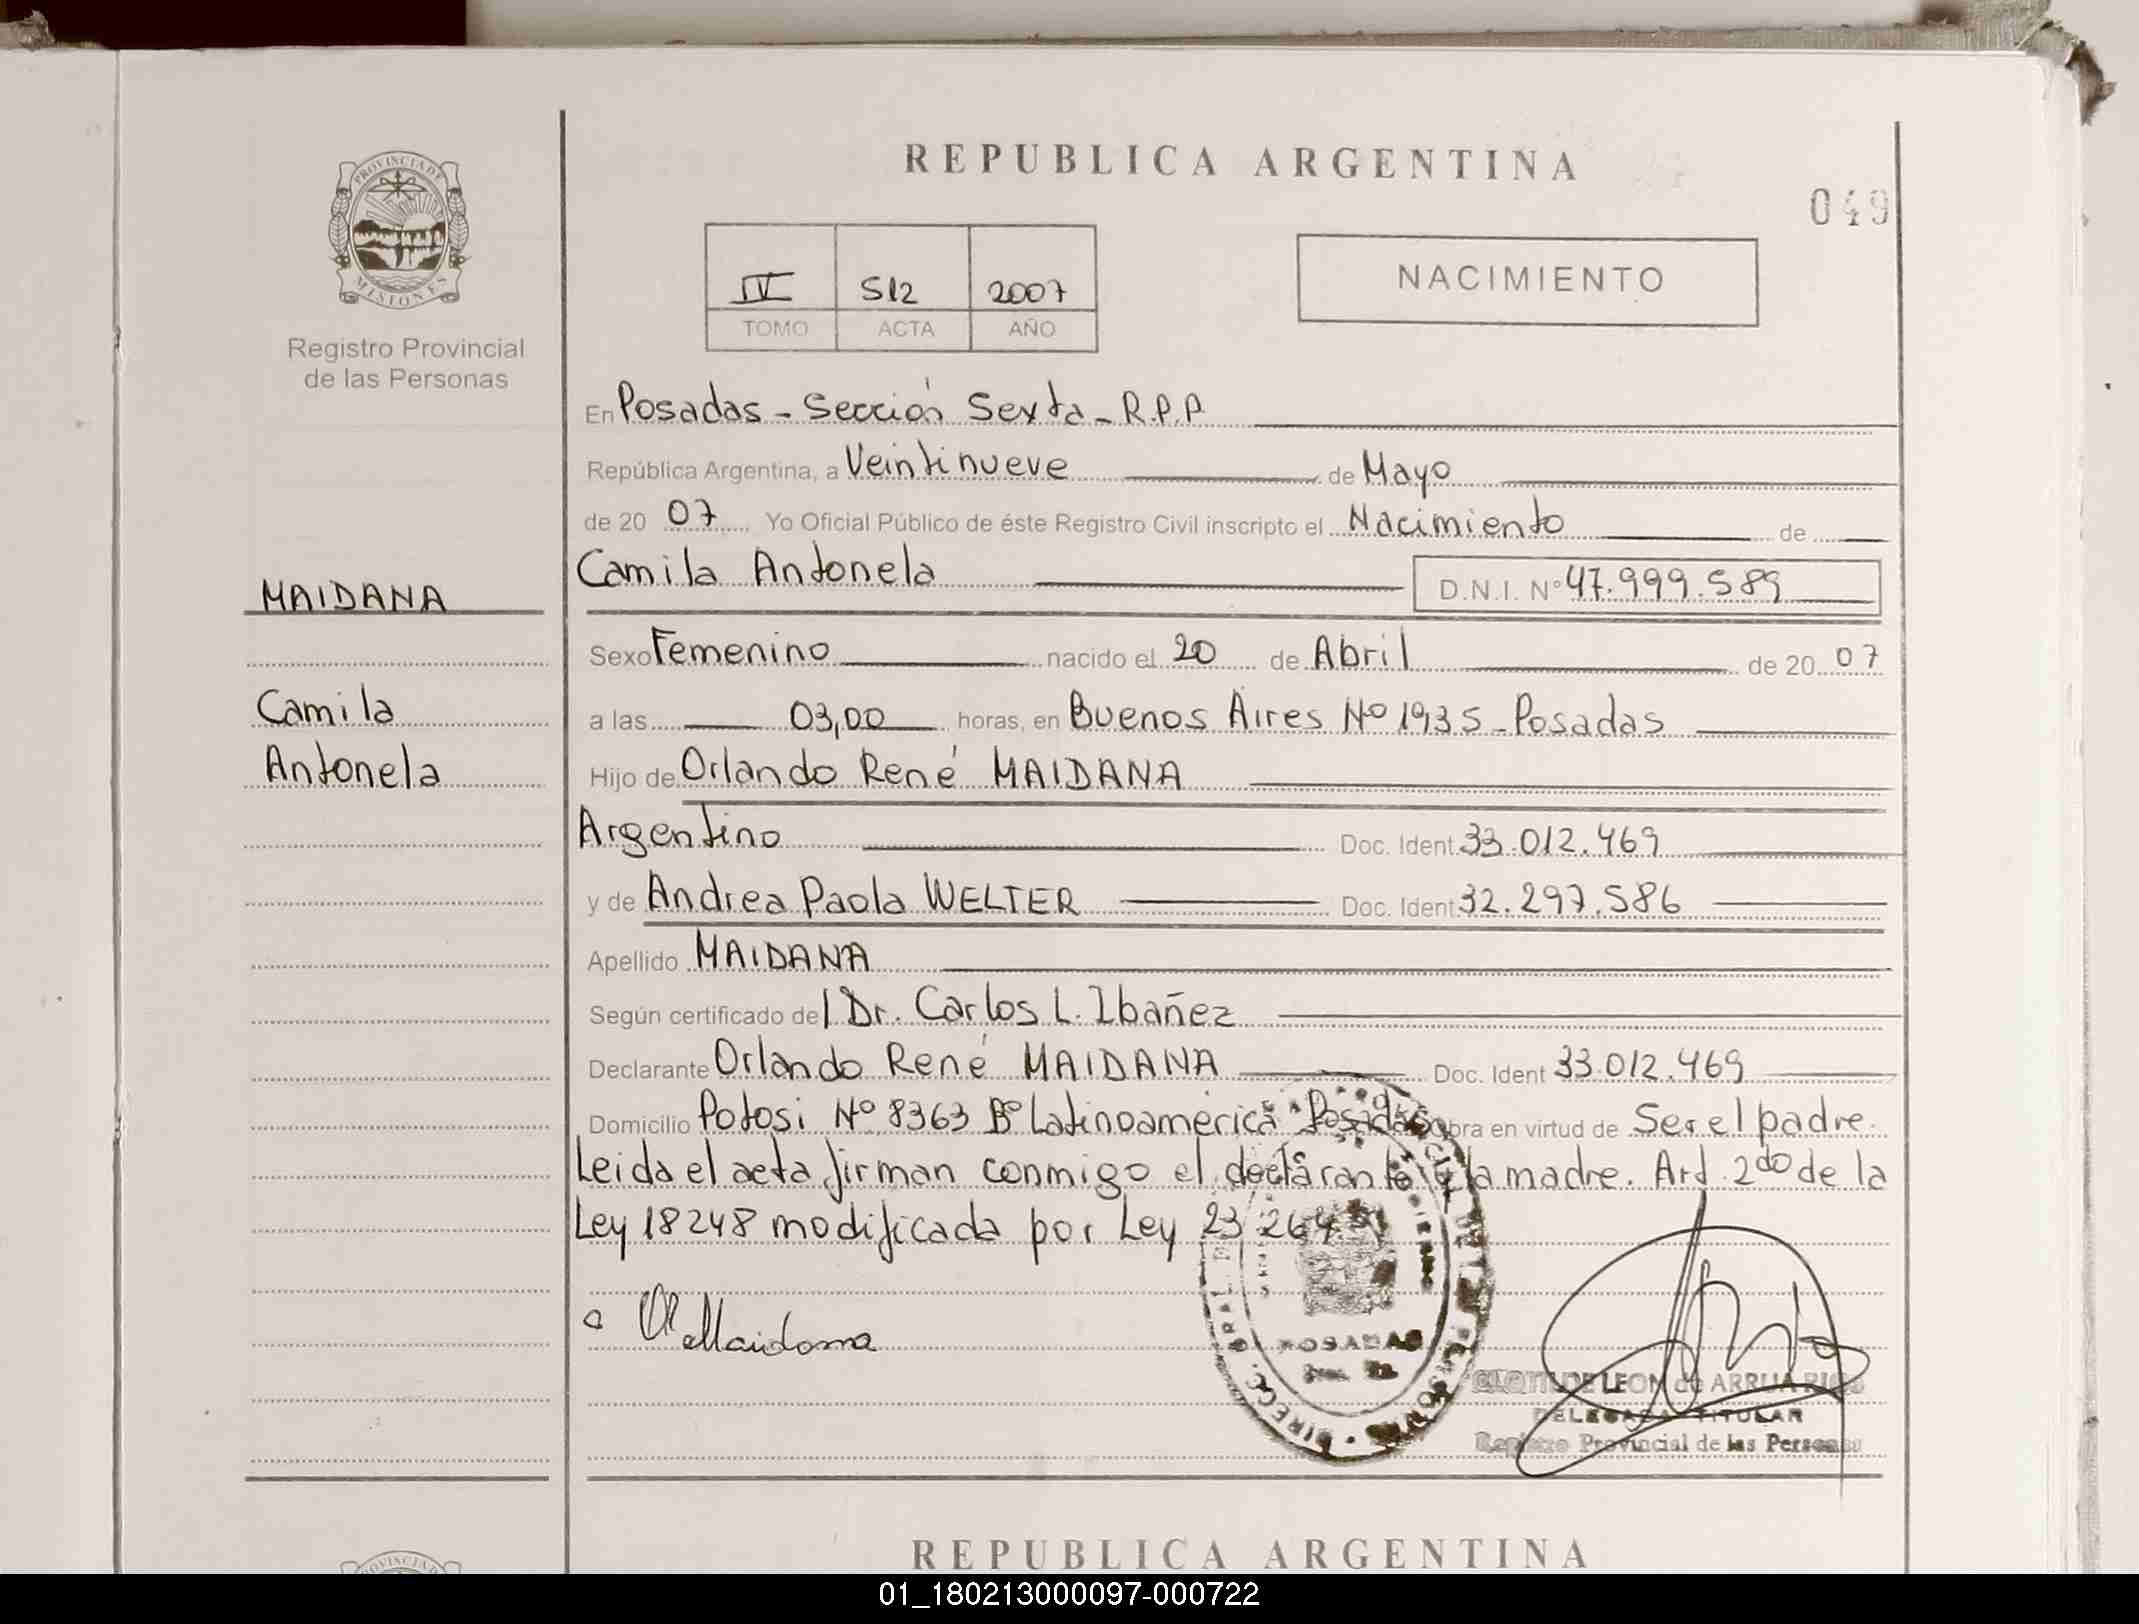 REPUBLICA ARGENTINA
049
PROVINCIA DE
MISIONES
Registro Provincial
de las Personas
IV 512 2007
TOMO ACTA AÑO
NACIMIENTO
En Posadas - Sección Sexta - R.P.P
República Argentina, a Veintinueve de Mayo
de 20 07 Yo Oficial Público de éste Registro Civil inscripto el Nacimiento de
MAIDANA
Camila Antonela D.N.I. Nº 47.999.589
Sexo Femenino nacido el 20 de Abril de 20 07
Camila
a las 03,00 horas, en Buenos Aires Nº 1935 - Posadas
Antonela
Hijo de Orlando René MAIDANA
Argentino Doc. Ident. 33.012.469
y de Andrea Paola WELTER Doc. Ident. 32.297.586
Apellido MAIDANA
Según certificado de l Dr. Carlos L. Ibañez
Declarante Orlando René MAIDANA Doc. Ident 33.012.469
Domicilio Potosi Nº 8363 Bº Latinoamérica Posadas obra en virtud de Ser el padre.
Leida el acta firman conmigo el declarante y la madre. Art. 2do de la
Ley 18248 modificada por Ley 23264
OR Maidana
POSADAS
DE LEON de ARRUA
DELEGADA TITULAR
Registro Provincial de las Personas
REPUBLICA ARGENTINA
PROVINCIA DE
01_180213000097-000722